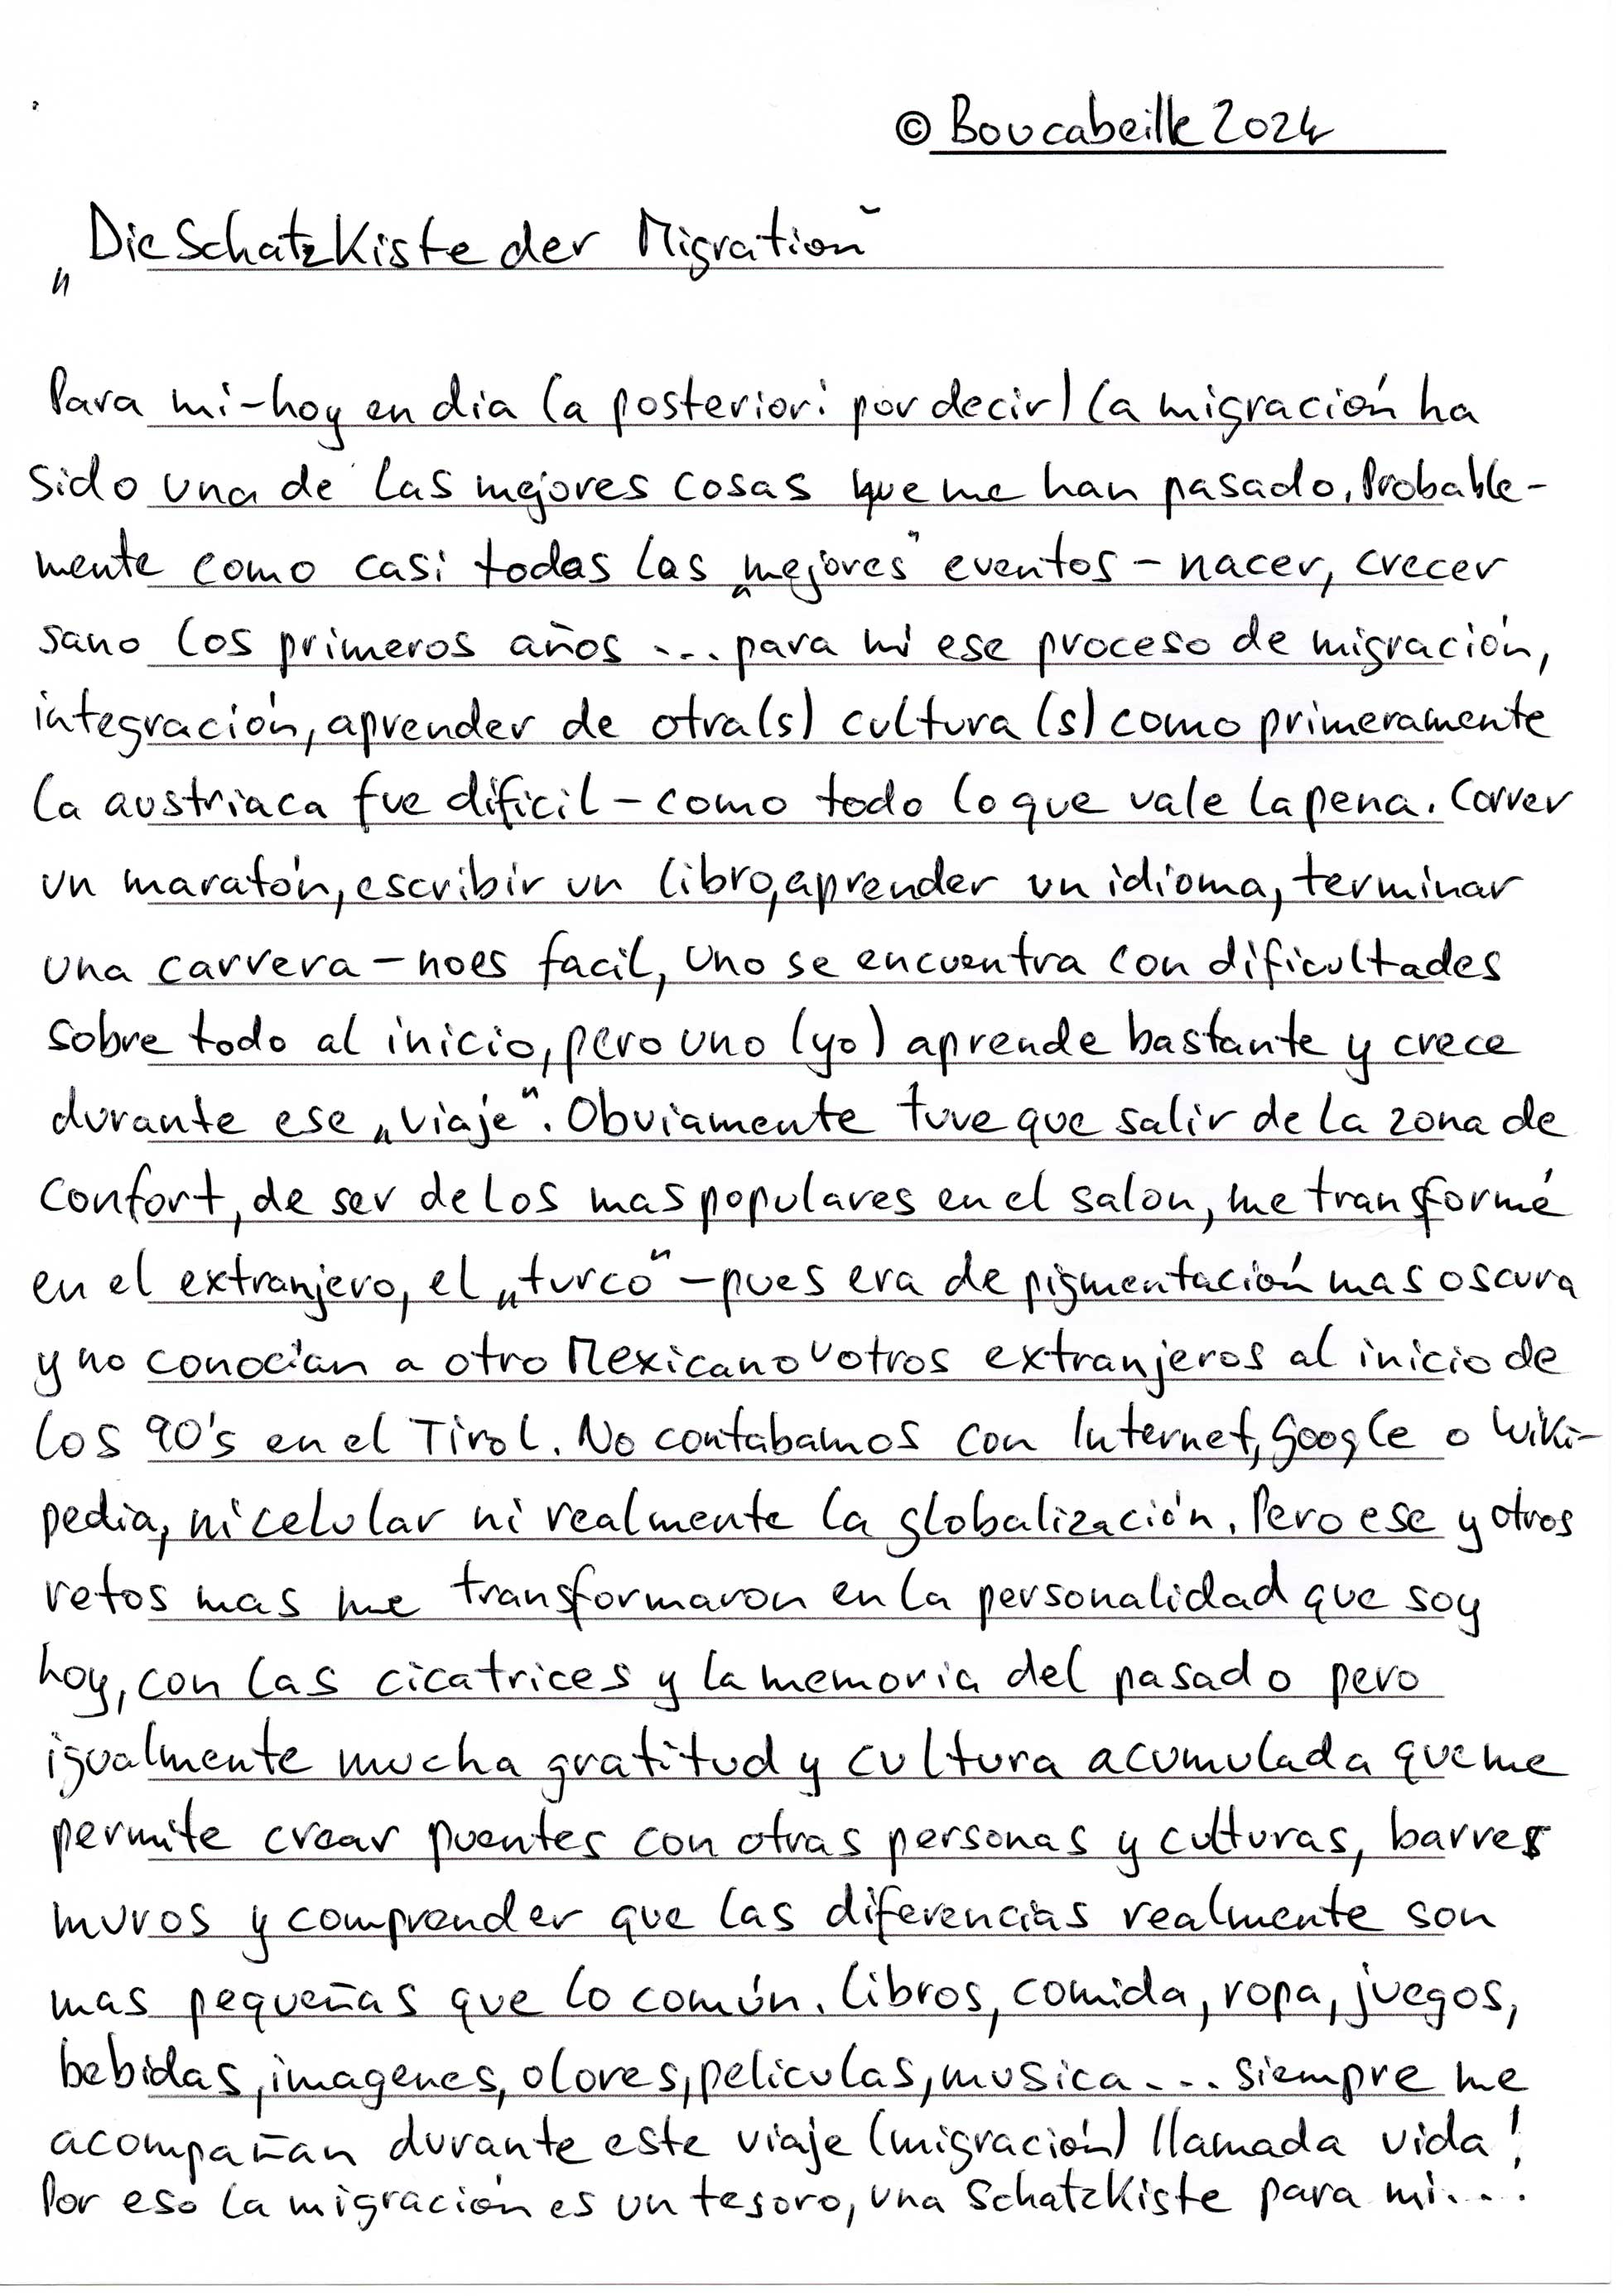 © Boucabeille 2024
„Die Schatzkiste der Migration"
Para mi - hoy en dia (a posteriori por decir) la migración ha
sido una de las mejores cosas que me han pasado. Probable-
mente como casi todas las „mejores" eventos - nacer, crecer
sano los primeros años ... para mi ese proceso de migración,
integración, aprender de otra(s) cultura(s) como primeramente
la austriaca fue dificil - como todo lo que vale la pena. Correr
un maratón, escribir un libro, aprender un idioma, terminar
una carrera - no es facil, uno se encuentra con dificultades
sobre todo al inicio, pero uno (yo) aprende bastante y crece
durante ese „viaje". Obviamente tuve que salir de la zona de
confort, de ser de los mas populares en el salon, me transformé
en el extranjero, el „turco" - pues era de pigmentación mas oscura
y no conocían a otro Mexicano u otros extranjeros al inicio de
los 90's en el Tirol. No contabamos con Internet, Google o Wiki-
pedia, ni celular ni realmente la globalización. Pero ese y otros
retos mas me transformaron en la personalidad que soy
hoy, con las cicatrices y la memoria del pasado pero
igualmente mucha gratitud y cultura acumulada que me
permite crear puentes con otras personas y culturas, barrer
muros y comprender que las diferencias realmente son
mas pequeñas que lo común. Libros, comida, ropa, juegos,
bebidas, imagenes, olores, peliculas, musica... siempre me
acompañan durante este viaje (migración) llamada vida!
Por eso la migración es un tesoro, una Schatzkiste para mi...